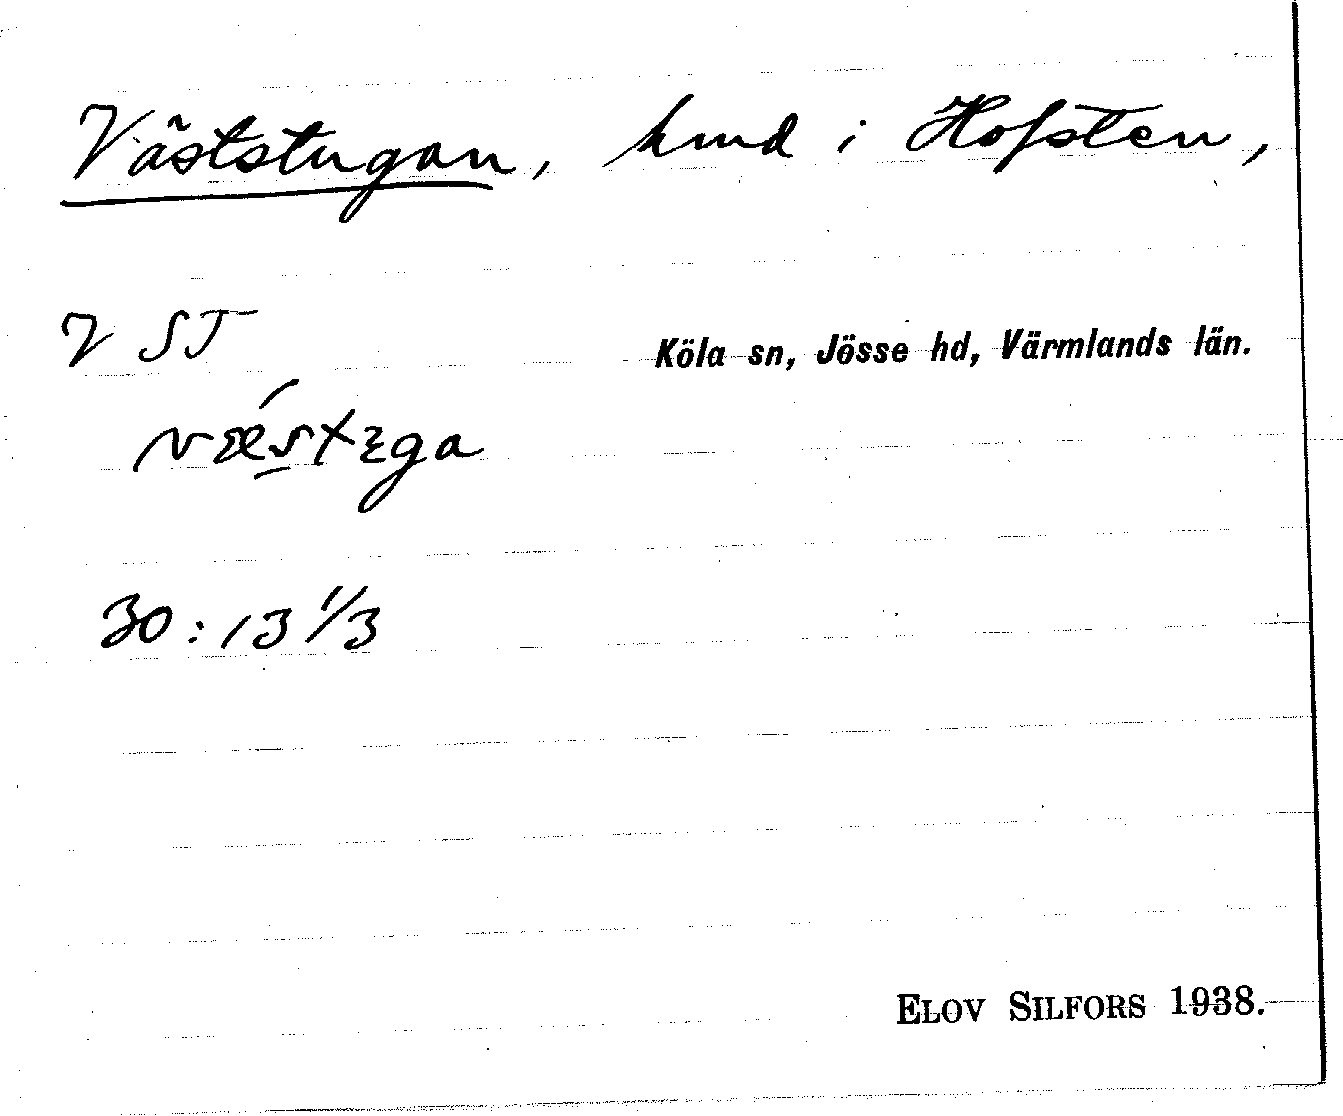 Väststugan, hmd i Hofsten,
V ST
Köla sn, Jösse hd, Värmlands län.
30:13 1/3
ELOV SILFORS 1938.